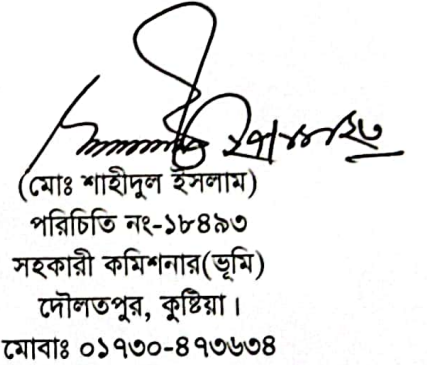 (মোঃ শাহীদুল ইসলাম)
পরিচিতি নং-১৮৪৯৩
সহকারী কমিশনার(ভূমি)
দৌলতপুর, কুষ্টিয়া।
মোবাঃ ০১৭৩০-৪৭৩৬৩৪